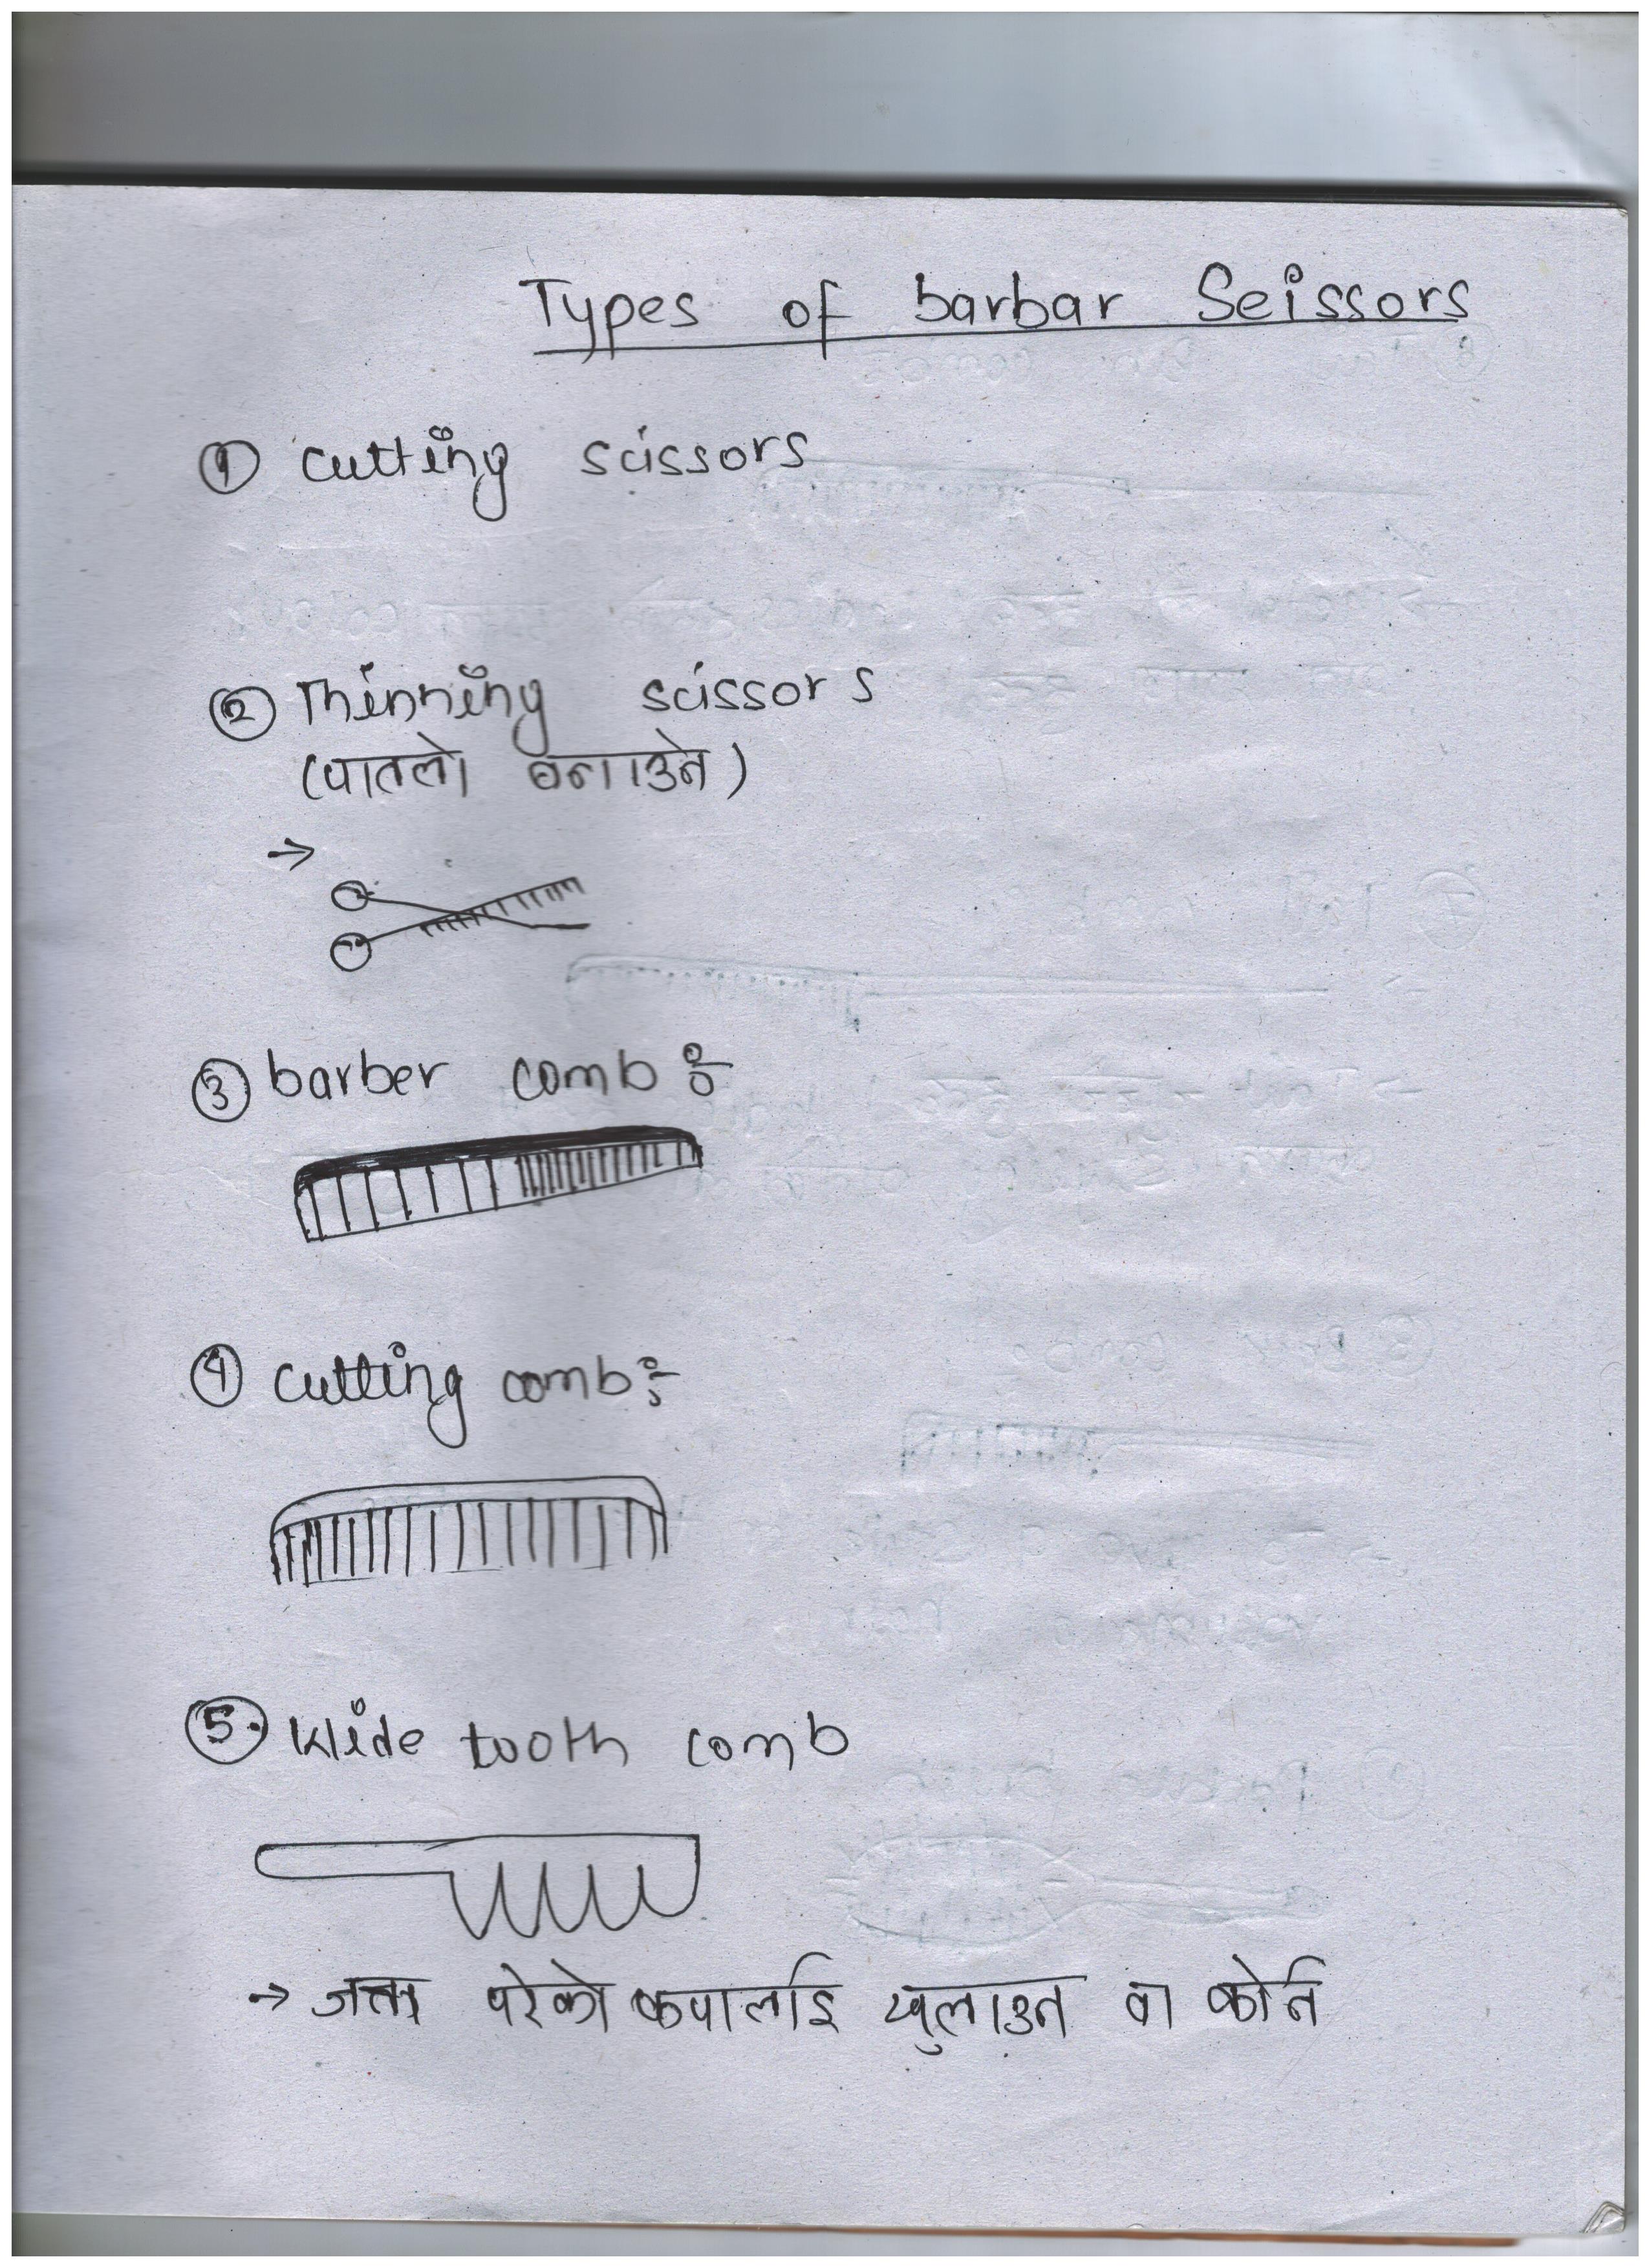 Types of barbar Seissors
① cutting scissors
② Thinning scissors
(पातलो बनाउने)
→
③ barber comb :-
④ cutting comb :-
⑤. Wide tooth comb
→ जत्ता परेको कपाललाई खुलाउन वा कोर्न